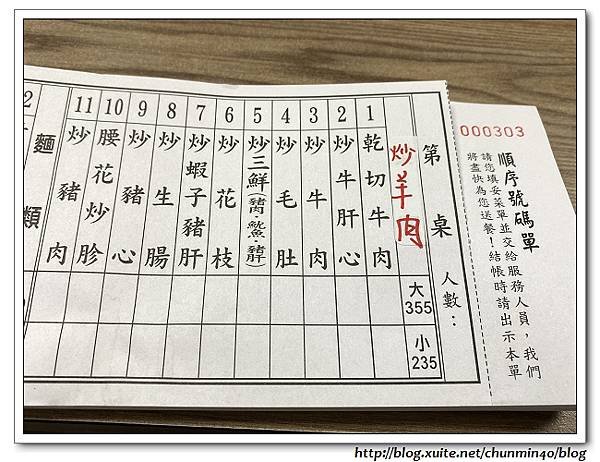 000303
順序號碼單
請您填妥菜單並交給服務人員，我們
將盡快為您送餐！結帳時請出示本單
第 桌 人數：
大 355
小 235
炒羊肉
1 乾切牛肉
2 炒牛肝心
3 炒牛肉
4 炒毛肚
5 炒三鮮
6 炒花枝
7 炒蝦子豬肝
8 炒生腸
9 炒豬心
10 腰花炒胗
11 炒豬肉
麵類
2
http://blog.xuite.net/chunmin40/blog